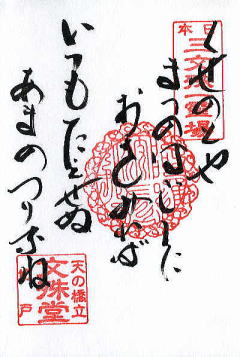 日本
三文殊第一霊場
くせのとや
まつのはごしに
おきみれば
いつもたえせぬ
あまのつりふね
天の橋立
文殊堂